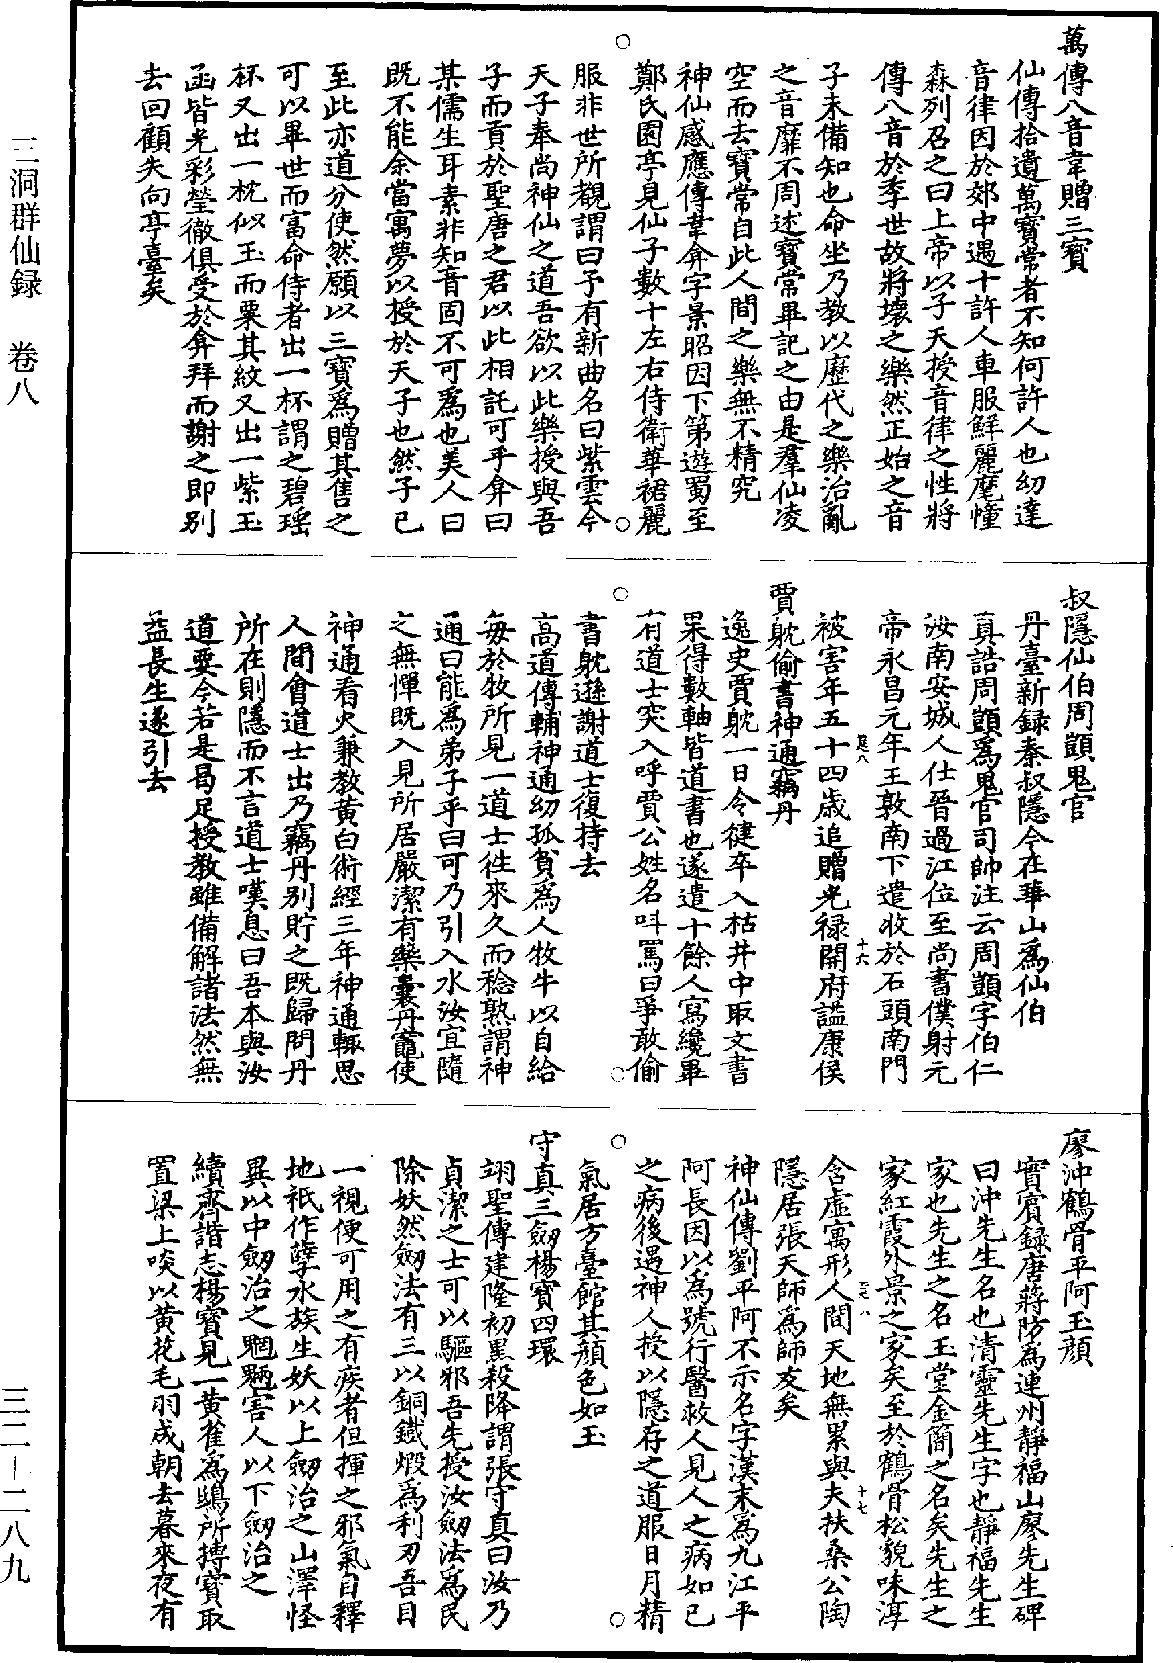 三洞群仙録　卷八
萬傳八音韋贈三寶
仙傳拾遺萬寶常者不知何許人也幼達
音律因於郊中遇十許人車服鮮麗麾幢
森列召之曰上帝以子天授音律之性將
傳八音於季世故將壞之樂然正始之音
子未備知也命坐乃教以歷代之樂治亂
之音靡不周述寶常畢記之由是羣仙凌
空而去寶常自此人間之樂無不精究
神仙感應傳韋弇字景昭因下第遊蜀至
鄭氏園亭見仙子數十左右侍衛華裾麗
服非世所覩謂曰子有新曲名曰紫雲今
天子奉尚神仙之道吾欲以此樂授與吾
子而貢於聖唐之君以此相託可乎弇曰
某儒生耳素非知音固不可爲也美人曰
既不能余當寓夢以授於天子也然子已
至此亦道分使然願以三寶爲贈其售之
可以畢世而富命侍者出一杯謂之碧瑶
杯又出一枕似玉而栗其紋又出一紫玉
函皆光彩瑩徹俱受於弇拜而謝之即别
去回顧失向亭臺矣
叔隱仙伯周顗鬼官
丹臺新録秦叔隱今在華山爲仙伯
真誥周顗爲鬼官司帥注云周顗字伯仁
汝南安城人仕晉過江位至尚書僕射元
帝永昌元年王敦南下遣收於石頭南門
被害年五十四歲追贈光禄開府謚康侯
十六
賈躭偷書神通竊丹
逸史賈躭一日令健卒入枯井中取文書
果得數軸皆道書也遂遣十餘人寫纔畢
有道士突入呼賈公姓名呌罵曰爭敢偷
書躭遜謝道士復持去
高道傳輔神通幼孤貧爲人牧牛以自給
每於牧所見一道士徃來久而稔熟謂神
通曰能爲弟子乎曰可乃引入水汝宜隨
之無憚既入見所居嚴潔有藥囊丹竈使
神通看火兼教黄白術經三年神通輒思
人間會道士出乃竊丹别貯之既歸問丹
所在則隱而不言道士嘆息曰吾本與汝
道要今若是曷足授教雖備解諸法然無
益長生遂引去
廖沖鶴骨平阿玉顔
實賓録唐蔣防為連州靜福山廖先生碑
曰沖先生名也清靈先生字也靜福先生
家也先生之名玉堂金簡之名矣先生之
家紅霞外景之家矣至於鶴骨松貌味淳
含虚寓形人間天地無累與夫扶桑公陶
十七
隱居張天師爲師友矣
神仙傳劉平阿不示名字漢末爲九江平
阿長因以爲號行醫救人見人之病如己
之病後遇神人授以隱存之道服日月精
氣居方臺館其顔色如玉
守真三劒楊寶四環
翊聖傳建隆初黑殺降謂張守真曰汝乃
貞潔之士可以驅邪吾先授汝劒法爲民
除妖然劒法有三以銅鐵煅爲利刃吾目
一視便可用之有疾者但揮之邪氣自釋
地祇作孽水族生妖以上劒治之山澤怪
異以中劒治之魍魎害人以下劒治之
續齊諧志楊寶見一黄雀爲鴟所摶寶取
置梁上啖以黄花毛羽成朝去暮來夜有
三二—二八九